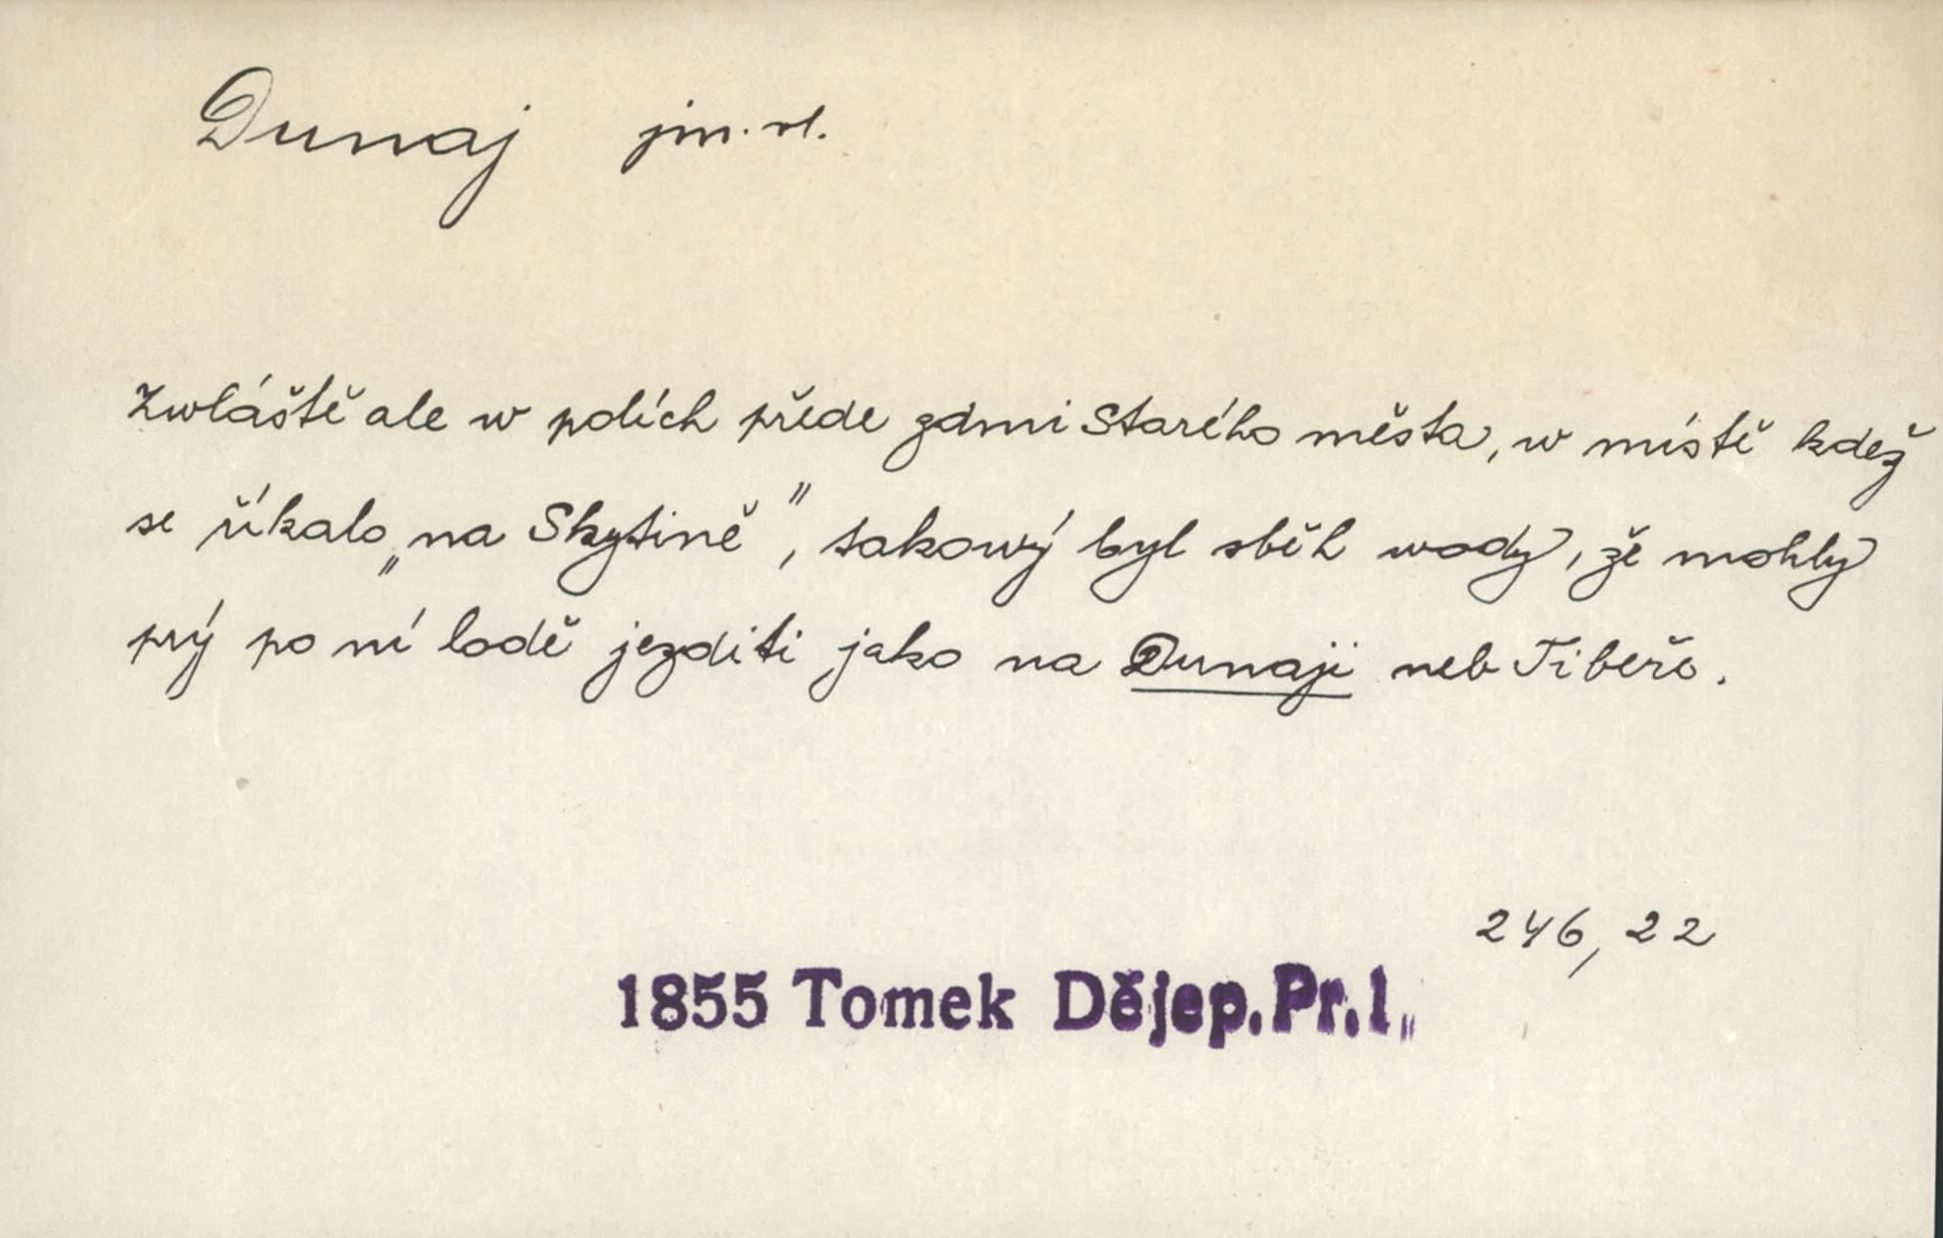 Dunaj jm. vl.
Zwláště ale w polích přede zdmi Starého města, w místě kdež
se říkalo „na Skytině”, takowý byl sběh wody, že mohly
prý po ní lodě jezditi jako na Dunaji neb Tibeře.
246, 22
1855 Tomek Dějep. Pr. I.